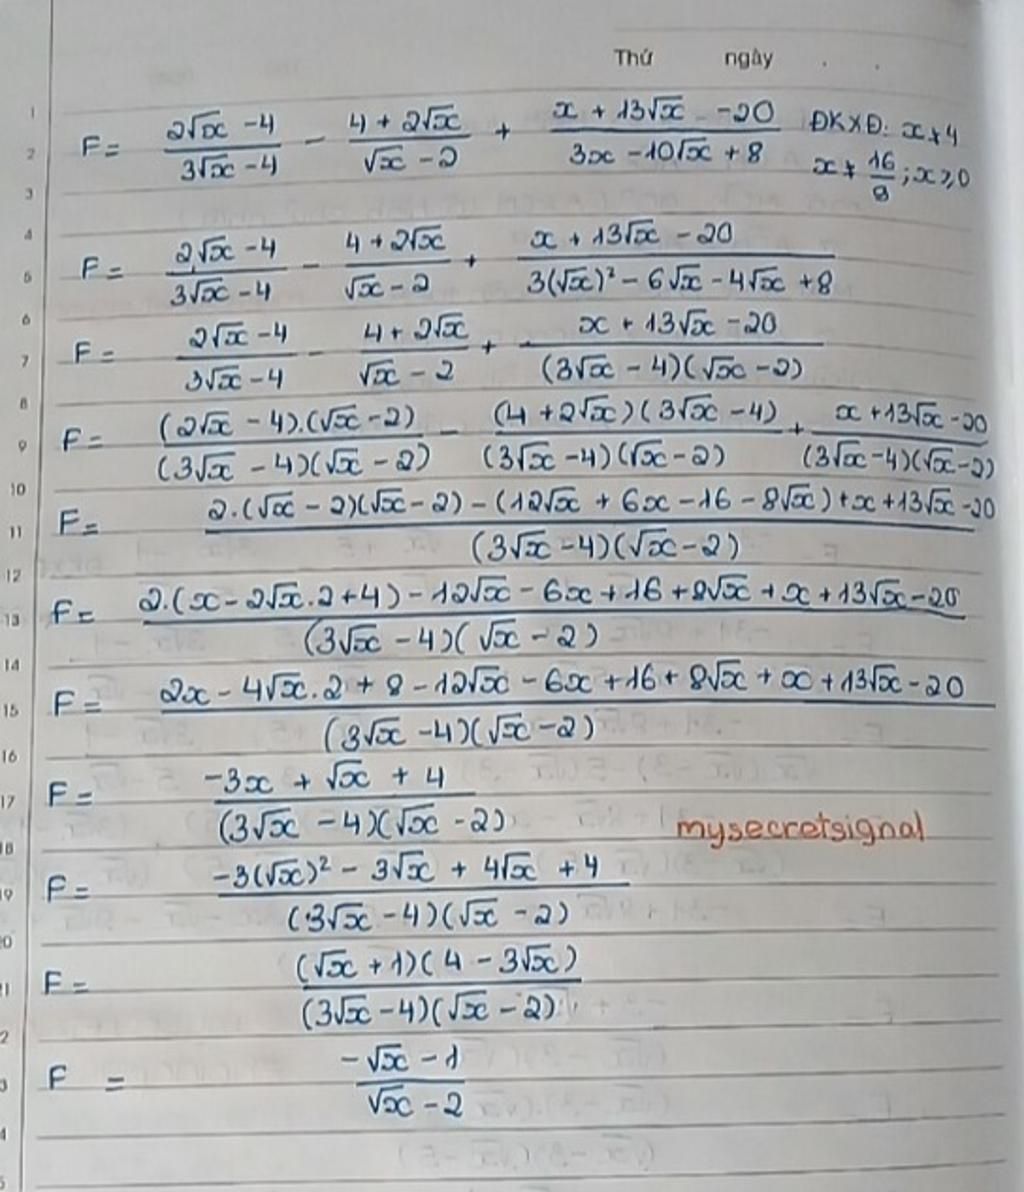 Thứ ngày . .
1
2
3
4
5
6
7
8
9
10
11
12
13
14
15
16
17
18
19
20
F = (2√x - 4)/(3√x - 4) - (4 + 2√x)/(√x - 2) + (x + 13√x - 20)/(3x - 10√x + 8) ĐKXĐ: x ≠ 4
x ≠ 16/9 ; x ≥ 0
F = (2√x - 4)/(3√x - 4) - (4 + 2√x)/(√x - 2) + (x + 13√x - 20)/(3(√x)² - 6√x - 4√x + 8)
F = (2√x - 4)/(3√x - 4) - (4 + 2√x)/(√x - 2) + (x + 13√x - 20)/((3√x - 4)(√x - 2))
F = ((2√x - 4).(√x - 2))/((3√x - 4)(√x - 2)) - ((4 + 2√x)(3√x - 4))/((3√x - 4)(√x - 2)) + (x + 13√x - 20)/((3√x - 4)(√x - 2))
F = (2.(√x - 2)(√x - 2) - (12√x + 6x - 16 - 8√x) + x + 13√x - 20)/((3√x - 4)(√x - 2))
F = (2.(x - 2√x.2 + 4) - 12√x - 6x + 16 + 8√x + x + 13√x - 20)/((3√x - 4)(√x - 2))
F = (2x - 4√x.2 + 8 - 12√x - 6x + 16 + 8√x + x + 13√x - 20)/((3√x - 4)(√x - 2))
F = (-3x + √x + 4)/((3√x - 4)(√x - 2))
mysecretsignal
F = (-3(√x)² - 3√x + 4√x + 4)/((3√x - 4)(√x - 2))
F = ((√x + 1)(4 - 3√x))/((3√x - 4)(√x - 2))
F = (-√x - 1)/(√x - 2)